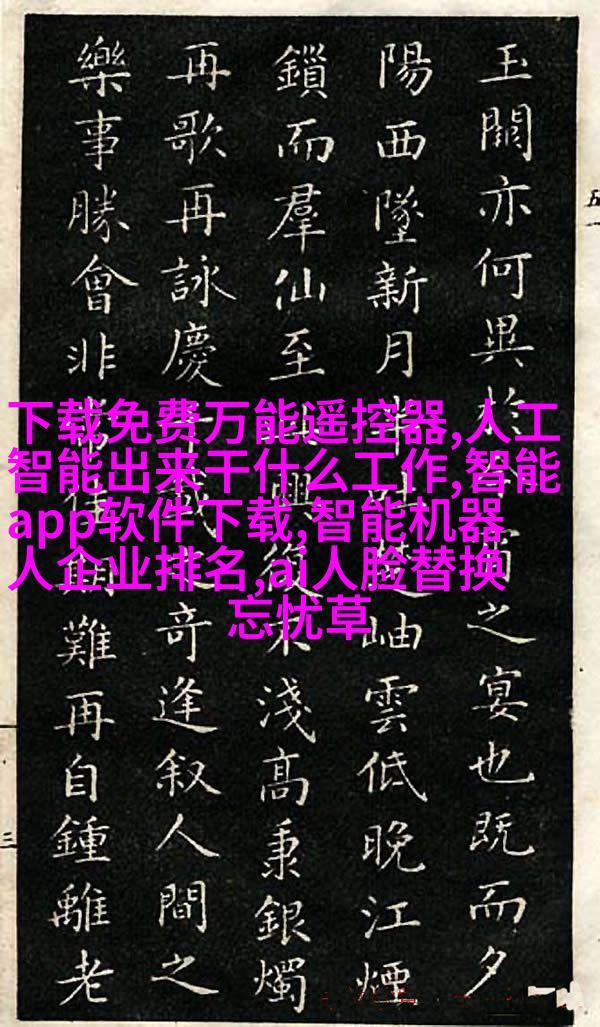 玉闕亦何異於宵之宴也既而夕
陽西墜新月半楚岫雲低晚江煙
鎖而羣仙至興淺高秉銀燭
再歌再詠慶千載之奇逢叙人間之
樂事勝會非常期難再自鍾離老
下载免费万能遥控器,人工
智能出来干什么工作,智能
app软件下载,智能机器
人企业排名,ai人脸替换
忘忧草